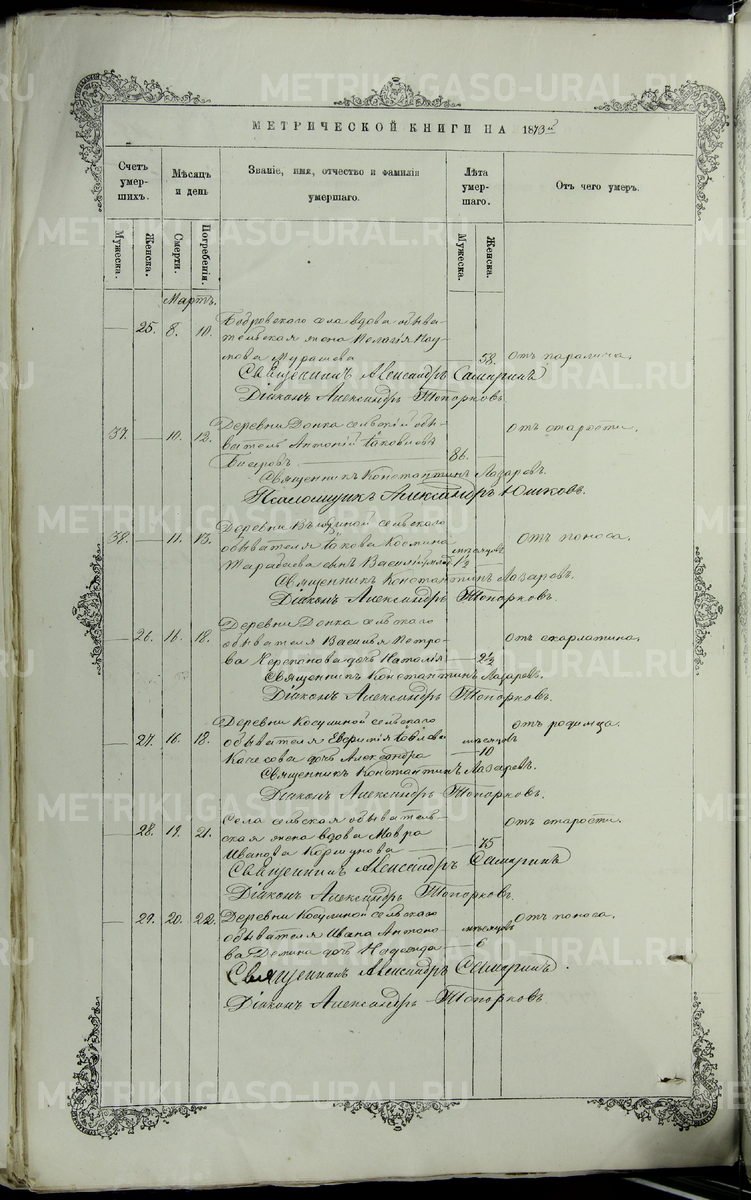 МЕТРИЧЕСКОЙ КНИГИ НА 1873й
Счетъ умер- шихъ.
Мѣсяцъ и день
Званіе, имя, отчество и фамилія умершаго.
Лѣта умер- шаго.
Отъ чего умеръ.
Мужеска.
Женска.
Смерти.
Погребенія.
Мужеска.
Женска.
Мартъ.
— 25. 8. 10. Бобровскаго села вдова обыва-
тельская жена Пелагія Нау-
мова Мурашева — 58. отъ паралича.
Священникъ Александръ Самаринъ
Діаконъ Александръ Топорковъ
37. — 10. 12. Деревни Донка сельскій обы- отъ старости.
ватель Антоній Іаковлевъ
Бисеровъ 86.
Священникъ Константинъ Лазаревъ.
Псаломщикъ Александръ Юшковъ.
38. — 11. 13. Деревни сельскаго отъ поноса.
обывателя Іакова Космина мѣсяцовъ
Тарабаева сынъ Василій 1½ —
Священникъ Константинъ Лазаревъ.
Діаконъ Александръ Топорковъ.
— 26. 16. 18. Деревни Донка сельскаго отъ скарлатина.
обывателя Василья Петро-
ва Черепанова дочь Наталія — 2½
Священникъ Константинъ Лазаревъ.
Діаконъ Александръ Топорковъ.
— 27. 16. 18. Деревни Косулиной сельскаго отъ родимца.
обывателя Евфимія мѣсяцовъ
дочь Александра — 10
Священникъ Константинъ Лазаревъ.
Діаконъ Александръ Топорковъ.
— 28. 19. 21. Села сельская обыватель- отъ старости.
ская жена вдова Мавра
Иванова Коршунова — 75
Священникъ Александръ Самаринъ
Діаконъ Александръ Топорковъ.
— 29. 20. 22. Деревни Косулиной сельскаго отъ поноса.
обывателя Ивана Антоно- мѣсяцовъ
ва Демина дочь Надежда 6
Священникъ Александръ Самаринъ.
Діаконъ Александръ Топорковъ
METRIKI.GASO-URAL.RU